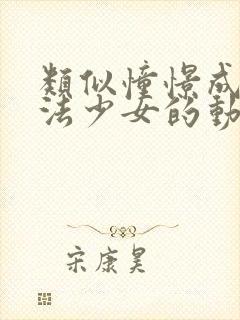 類似憧憬成
法少女的動
宋康昊